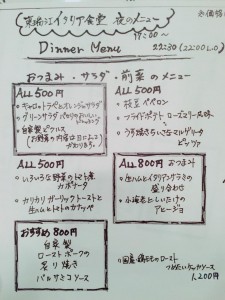 イタリア食堂 夜のメニュー
17:00〜
Dinner Menu 22:30 (22:00 L.O)
おつまみ・サラダ・前菜のメニュー
ALL 500円
・キャロットラペとオレンジのサラダ
・グリーンサラダ
・自家製ピクルス
(お野菜の内容は日によって
かわります。)
ALL 500円
・枝豆ペペロン
・フライドポテト ローズマリー風味
・うす焼きちいさなマルゲリータ
ピッツァ
ALL 500円
・いろいろな野菜のトマト煮
カポナータ
・カリカリガーリックトーストと
生ハムとトマトのカナッペ
ALL 800円 おつまみ
・生ハムとイタリアングラミの
盛り合わせ
・小海老としいたけの
アヒージョ
おすすめ 800円
自家製
ローストポークの
炙り焼き
バルサミコソース
国産 鶏ももロースト
1,200円